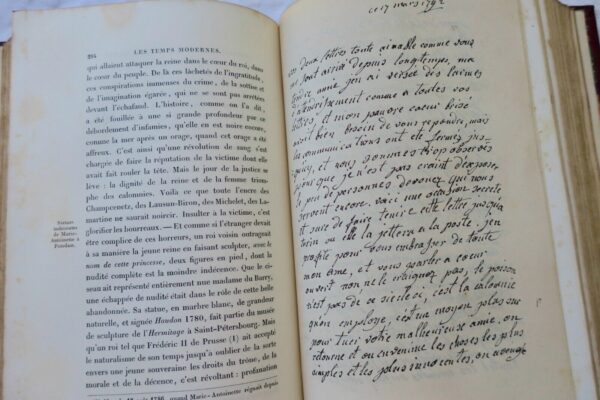 294
LES TEMPS MODERNES.
qui allaient attaquer la reine dans le cœur du roi, dans
le cœur du peuple. De là ces lâchetés de l'ingratitude,
ces conspirations immenses du crime, de la sottise et
de l'imagination égarée, qui ne se sont pas arrêtées
devant l'échafaud. L'histoire, comme on l'a dit,
a été fouillée à une si grande profondeur par ce
débordement d'infamies, qu'elle en est noire encore,
comme la mer après un orage, quand cet orage a été
affreux. C'est ainsi qu'une révolution de sang s'est
chargée de faire la réputation de la victime dont elle
avait fait rouler la tête. Mais le jour de la justice se
lève : la dignité de la reine et de la femme triom-
phe des calomnies. Voilà ce que toute l'encre des
Champcenetz, des Lauzun-Biron, des Michelet, des La-
martine ne saurait noircir. Insulter à la victime, c'est
glorifier les bourreaux. — Et comme si l'étranger devait
être complice de ces horreurs, un roi voisin outrageait
à sa manière la jeune reine en faisant sculpter, avec le
nom de cette princesse, deux figures en pied, dont la
nudité complète est la moindre indécence. Que le ci-
seau ait représenté entièrement nue madame du Barry,
une échappée de nudité était dans le rôle de cette belle
abandonnée. Sa statue, en marbre blanc, de grandeur
naturelle, et signée Houdon 1780, fait partie du musée
de sculpture de l'Hermitage à Saint-Pétersbourg. Mais
qu'un roi tel que Frédéric II de Prusse (1) ait accepté
le naturalisme de son temps jusqu'à oublier de la sorte
envers une jeune souveraine les droits du trône, de la
morale et de la décence, c'est révoltant : profanation
Statues
indécentes
de Marie-
Antoinette à
Potsdam.
1786, quand Marie-Antoinette régnait depuis
ce 17 mars 1792
deux lettres toute aimable comme vous
sont arrivé depuis longtemps, ma
amie jen ai versée des larmes
attendrissement comme a toutes vos
et mon pauvre coeur brisé
bien besoin de vous repondre, mais
communications ont été fermés jus-
et nous sommes trop observés
pour que je n'est pas craint d'exposer
le peu de personnes devouez qui nous
servent encore. vaci une occasion secrete
et sure de faire tenir cette lettre jusqua
turin ou elle la jettera a la poste. jen
profite pour vous embrasser de toute
mon ame, et vous parler a coeur
ouvert non, ne le craignez pas, le poison
n'est pas de ce siecle ci, c'est la calomnie
qu'on employe, c'est un moyen plus sur
pour tuer votre malheureuse amie, on
redonne et on envenime les choses les plus
simples et les plus innocentes, on